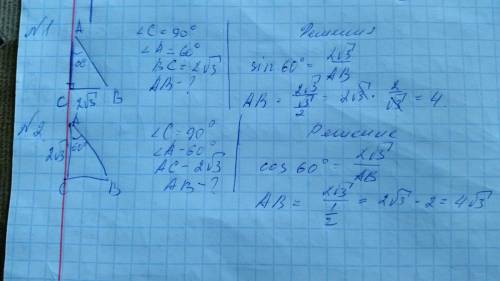 N1
A
60°
C 2√3 B
∠C = 90°
∠A = 60°
BC = 2√3
AB - ?
Решение
sin 60° = 2√3/AB
AB = 2√3/(√3/2) = 2√3 · 2/√3 = 4
N2
A
2√3 60°
C B
∠C = 90°
∠A - 60°
AC - 2√3
AB - ?
Решение
cos 60° = 2√3/AB
AB = 2√3/(1/2) = 2√3 · 2 = 4√3